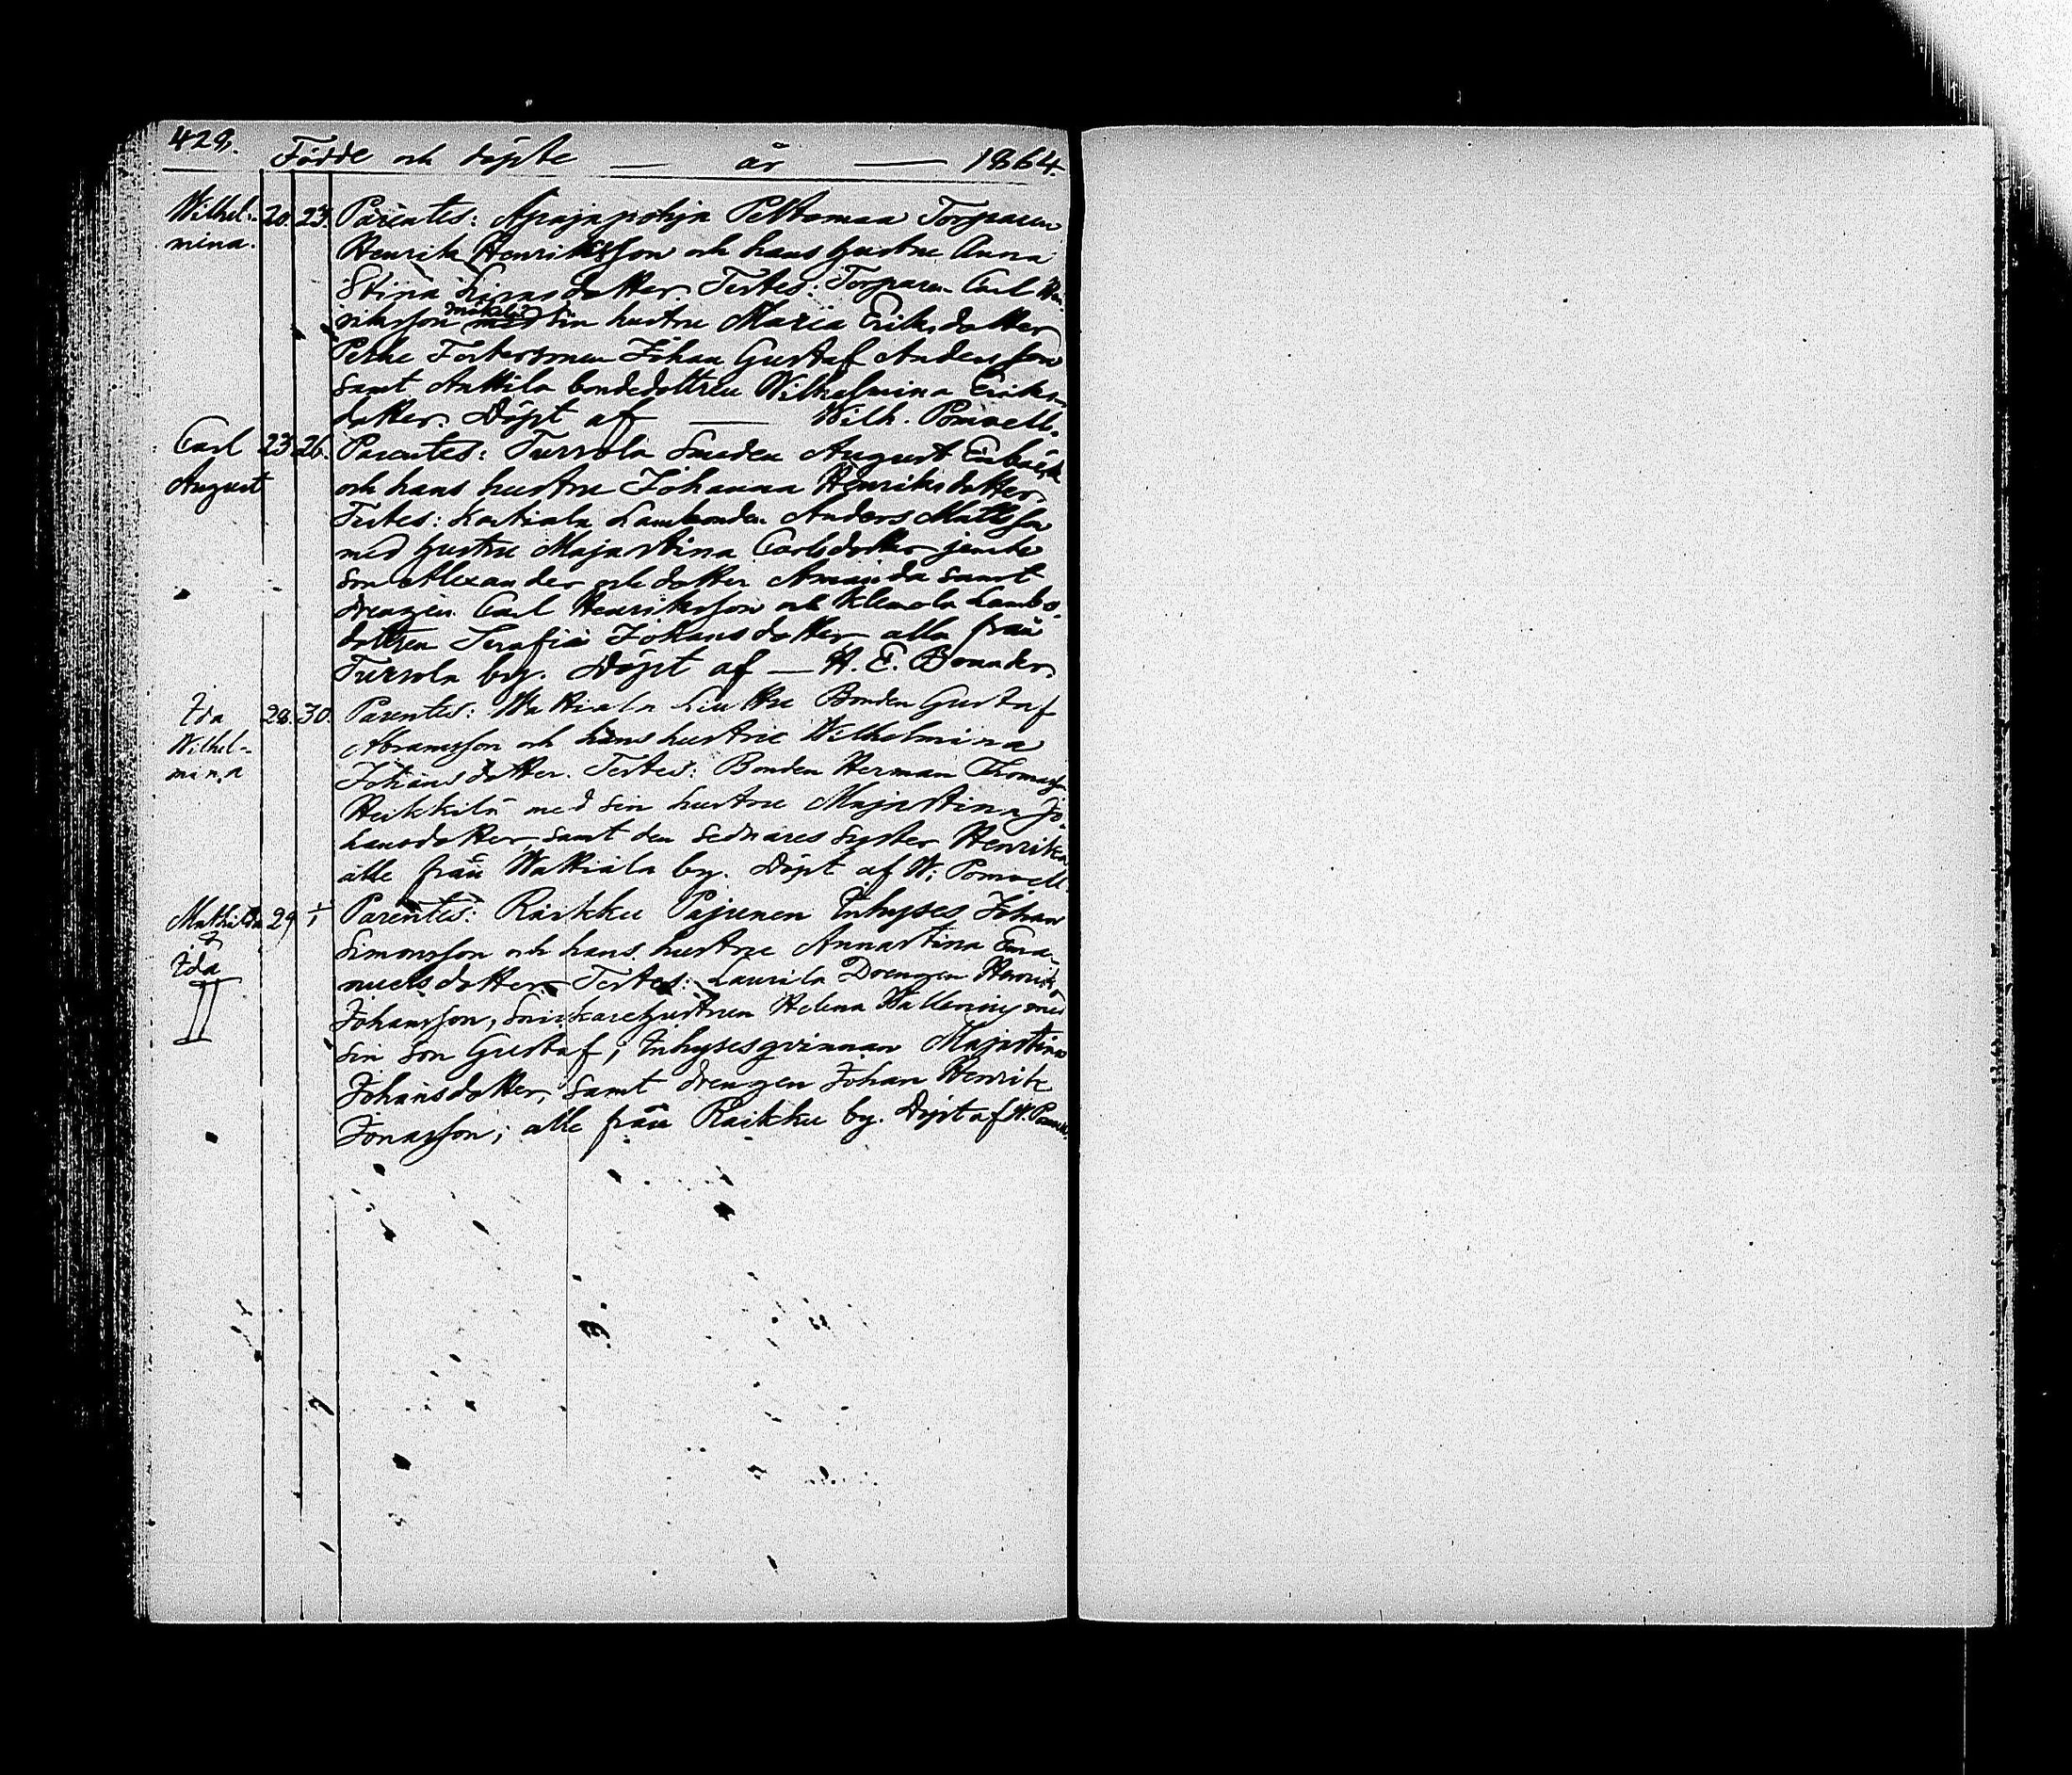 428.
Födde och döpte — år — 1864.
Wilhel- 20. 23. Parentes: Apajapohja Peltomaa Torparen
mina. Henrik Henriksson och hans hustru Anna
Stina Simsdotter. Testes: Torparen Carl Hen-
riksson med sin hustru Maria Eriksdotter
Johan Gustaf Andersson
samt Anttila bondedottren Wilhelmina Eriks-
dotter. Döpt af — Wilh. Ponvell.
Carl 23 26. Parentes: Turrola Smeden August
August och hans hustru Johanna Henriksdotter.
Testes: Anders Mattsson
med hustru Majastina Carlsdotter jemte
son Alexander och dotter Amanda samt
drengen Carl Henriksson och Klemola
dottren Serafia Johansdotter alla från
Turrola by. Döpt af — H. E. Bonnder.
Ida 28. 30. Parentes: Wattiala Liuttu Bonden Gustaf
Wilhel- Abramsson och hans hustru Wilhelmina
mina Johansdotter. Testes: Bonden Herman Thomasson
Heikkilä med sin hustru Majastina Jo-
hansdotter, samt den sednares syster Henrika
alle från Wattiala by. Döpt af W. Ponvell.
Mathilda 29 1/1 Parentes: Raikku Pajunen Inhyses Johan
& Simonsson och hans hustru Annastina Ema-
Ida nuelsdotter Testes: Laurila Drengen Henrik
II Johansson, Snickarehustrun Helena Walleniug med
sin son Gustaf, Inhysesqvinnan Majastina
Johansdotter, samt drengen Johan Henrik
Jonasson; alle från Raikku by. Döpt af W. Ponvell.